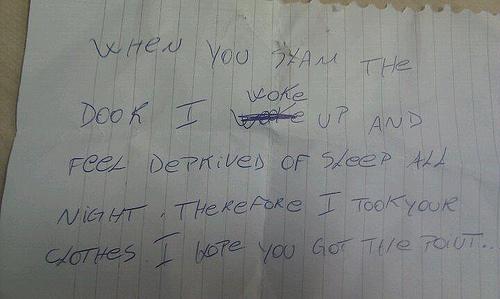 WHEN YOU SLAM THE
DOOR I woke UP AND
FEEL DEPRIVED OF SLEEP ALL
NIGHT. THEREFORE I TOOK YOUR
CLOTHES. I HOPE YOU GOT THE POINT..